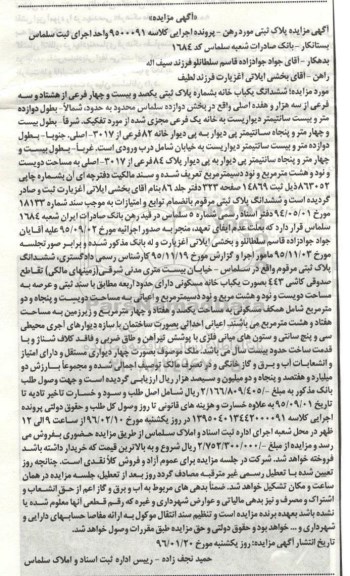 «آگهی مزایده»
آگهی مزایده پلاک ثبتی مورد رهن - پرونده اجرایی کلاسه ۹۵۰۰۰۹۱ واحد اجرای ثبت سلماس
بستانکار - بانک صادرات شعبه سلماس کد ۱۶۸۴
بدهکار - آقای جواد جوادزاده قاسم سلطانلو فرزند سیف اله
راهن - آقای بخشی ایلاتی اغزیارت فرزند لطیف
مورد مزایده: ششدانگ یکباب خانه بشماره پلاک ثبتی یکصد و بیست و چهار فرعی از هشتاد و سه
فرعی از سه هزار و هفده اصلی واقع در بخش دوازده سلماس محدود به حدود، شمالاً - بطول دوازده
متر و بیست سانتیمتر دیواریست به خانه یک فرعی مجزی شده از مورد تفکیک، شرقاً - بطول بیست
و چهار متر و پنجاه سانتیمتر پی دیوار به پی دیوار خانه ۸۲ فرعی از ۳۰۱۷- اصلی، جنوبا - بطول
دوازده متر و بیست سانتیمتر دیواریست به خیابان شامل درب ورودی است، غرباً - بطول بیست و
چهار متر و پنجاه سانتیمتر پی دیوار به پی دیوار پلاک ۸۴ فرعی از ۳۰۱۷- اصلی به مساحت دویست
و نود و هشت مترمربع و نود دسیمترمربع تعریف شده و سند مالکیت دفترچه ای آن بشماره چاپی
۸۶۳۰۵۲ ذیل ثبت ۱۴۸۶۹ صفحه ۳۲۳ دفتر جلد ۸۶ بنام آقای بخشی ایلاتی اغزیارت ثبت و صادر
گردیده است و ششدانگ پلاک ثبتی مرقوم بانضمام توابع و امتیازات به موجب سند شماره ۱۸۱۳۳
مورخ ۹۴/۰۵/۰۱ دفتر اسناد رسمی شماره ۵ سلماس در قید رهن بانک صادرات ایران شعبه ۱۶۸۴
سلماس قرار دارد که بعلت عدم ایفای تعهد، منجر به صدور اجرائیه مورخ ۹۵/۰۹/۰۲ علیه آقایان
جواد جوادزاده قاسم سلطانلو و بخشی ایلاتی اغزیارت و له بانک مذکور شده و برابر صورتجلسه
مورخ ۹۵/۱۱/۰۳ مامور اجرا و گزارش مورخ ۹۵/۱۱/۱۹ کارشناس رسمی دادگستری، ششدانگ
پلاک ثبتی مرقوم واقع در سلماس - خیابان بیست متری مدنی شرقی(زمینهای مالکی) تقاطع
صدوقی کاشی ۴۴۳ بصورت یکباب خانه مسکونی دارای حدود اربعه مطابق با سند ثبتی و عرصه به
مساحت دویست و نود و هشت مربع و نود دسیمترمربع و اعیانی به مساحت دویست و پنجاه و دو
مترمربع شامل همکف مسکونی به مساحت یکصد و هفتاد و چهار مترمربع و زیرزمین به مساحت
هفتاد و هشت مترمربع می باشند. اعیانی احداثی بصورت ساختمان با سازه دیوارهای آجری محیطی
سی و پنج سانتی و ستون های میانی فلزی با پوشش تیرآهن و طاق ضربی و فاقد کلاف شناژ و با
قدمت ساخت حدود بیست سال می باشد. ملک موصوف بصورت چهار دیواری مستقل و دارای امتیاز
و انشعابات آب و برق و گاز خانگی و در تصرف مالک توصیف اجمالی شده و مجموعاً با ارزش دو
میلیارد و هفتصد و پنجاه و دو میلیون و سیصد هزار ریال ارزیابی گردیده است و جهت وصول طلب
بانک مذکور به مبلغ -/۲/۱۶۶/۸۰۹/۴۰۵ ریال شامل اصل طلب و سود و خسارت تاخیر تادیه تا
تاریخ ۹۵/۰۹/۰۱ به علاوه خسارت و هزینه های قانونی تا روز وصول کل طلب و حقوق دولتی پرونده
اجرایی کلاسه ۱۳۹۵۰۴۰۱۲۴۴۲۰۰۰۰۹۱ در روز یکشنبه مورخ ۹۶/۰۲/۱۰ از ساعت ۹ الی ۱۲
ظهر در محل شعبه اجرای اداره ثبت اسناد و املاک سلماس از طریق مزایده حضوری بفروش می
رسد و مزایده از مبلغ -/۲/۷۵۲/۳۰۰/۰۰۰ ریال شروع و به بالاترین قیمت که خریدار داشته باشد
فروخته خواهد شد. شرکت در جلسه مزایده برای عموم آزاد و فروش کلاً نقدی است. چنانچه روز
تعیین شده با تعطیل رسمی غیر مترقبه مصادف گردد روز بعد از تعطیل، جلسه مزایده در همان
ساعت و مکان تشکیل خواهد شد. ضمناً بدهی های مربوط به آب و برق و گاز اعم از حق انشعاب و
اشتراک و مصرف و نیز بدهی مالیاتی و عوارض شهرداری و غیره که رقم قطعی آنها معلوم شده یا
نشده باشد بعهده برنده مزایده است و تنظیم سند انتقال موکول به ارائه مفاصا حسابهای دارایی و
شهرداری و ... خواهد بود و حقوق دولتی و حق مزایده طبق مقررات وصول خواهد شد.
تاریخ انتشار آگهی مزایده: روز یکشنبه مورخ ۹۶/۰۱/۲۰
حمید نجف زاده - رییس اداره ثبت اسناد و املاک سلماس